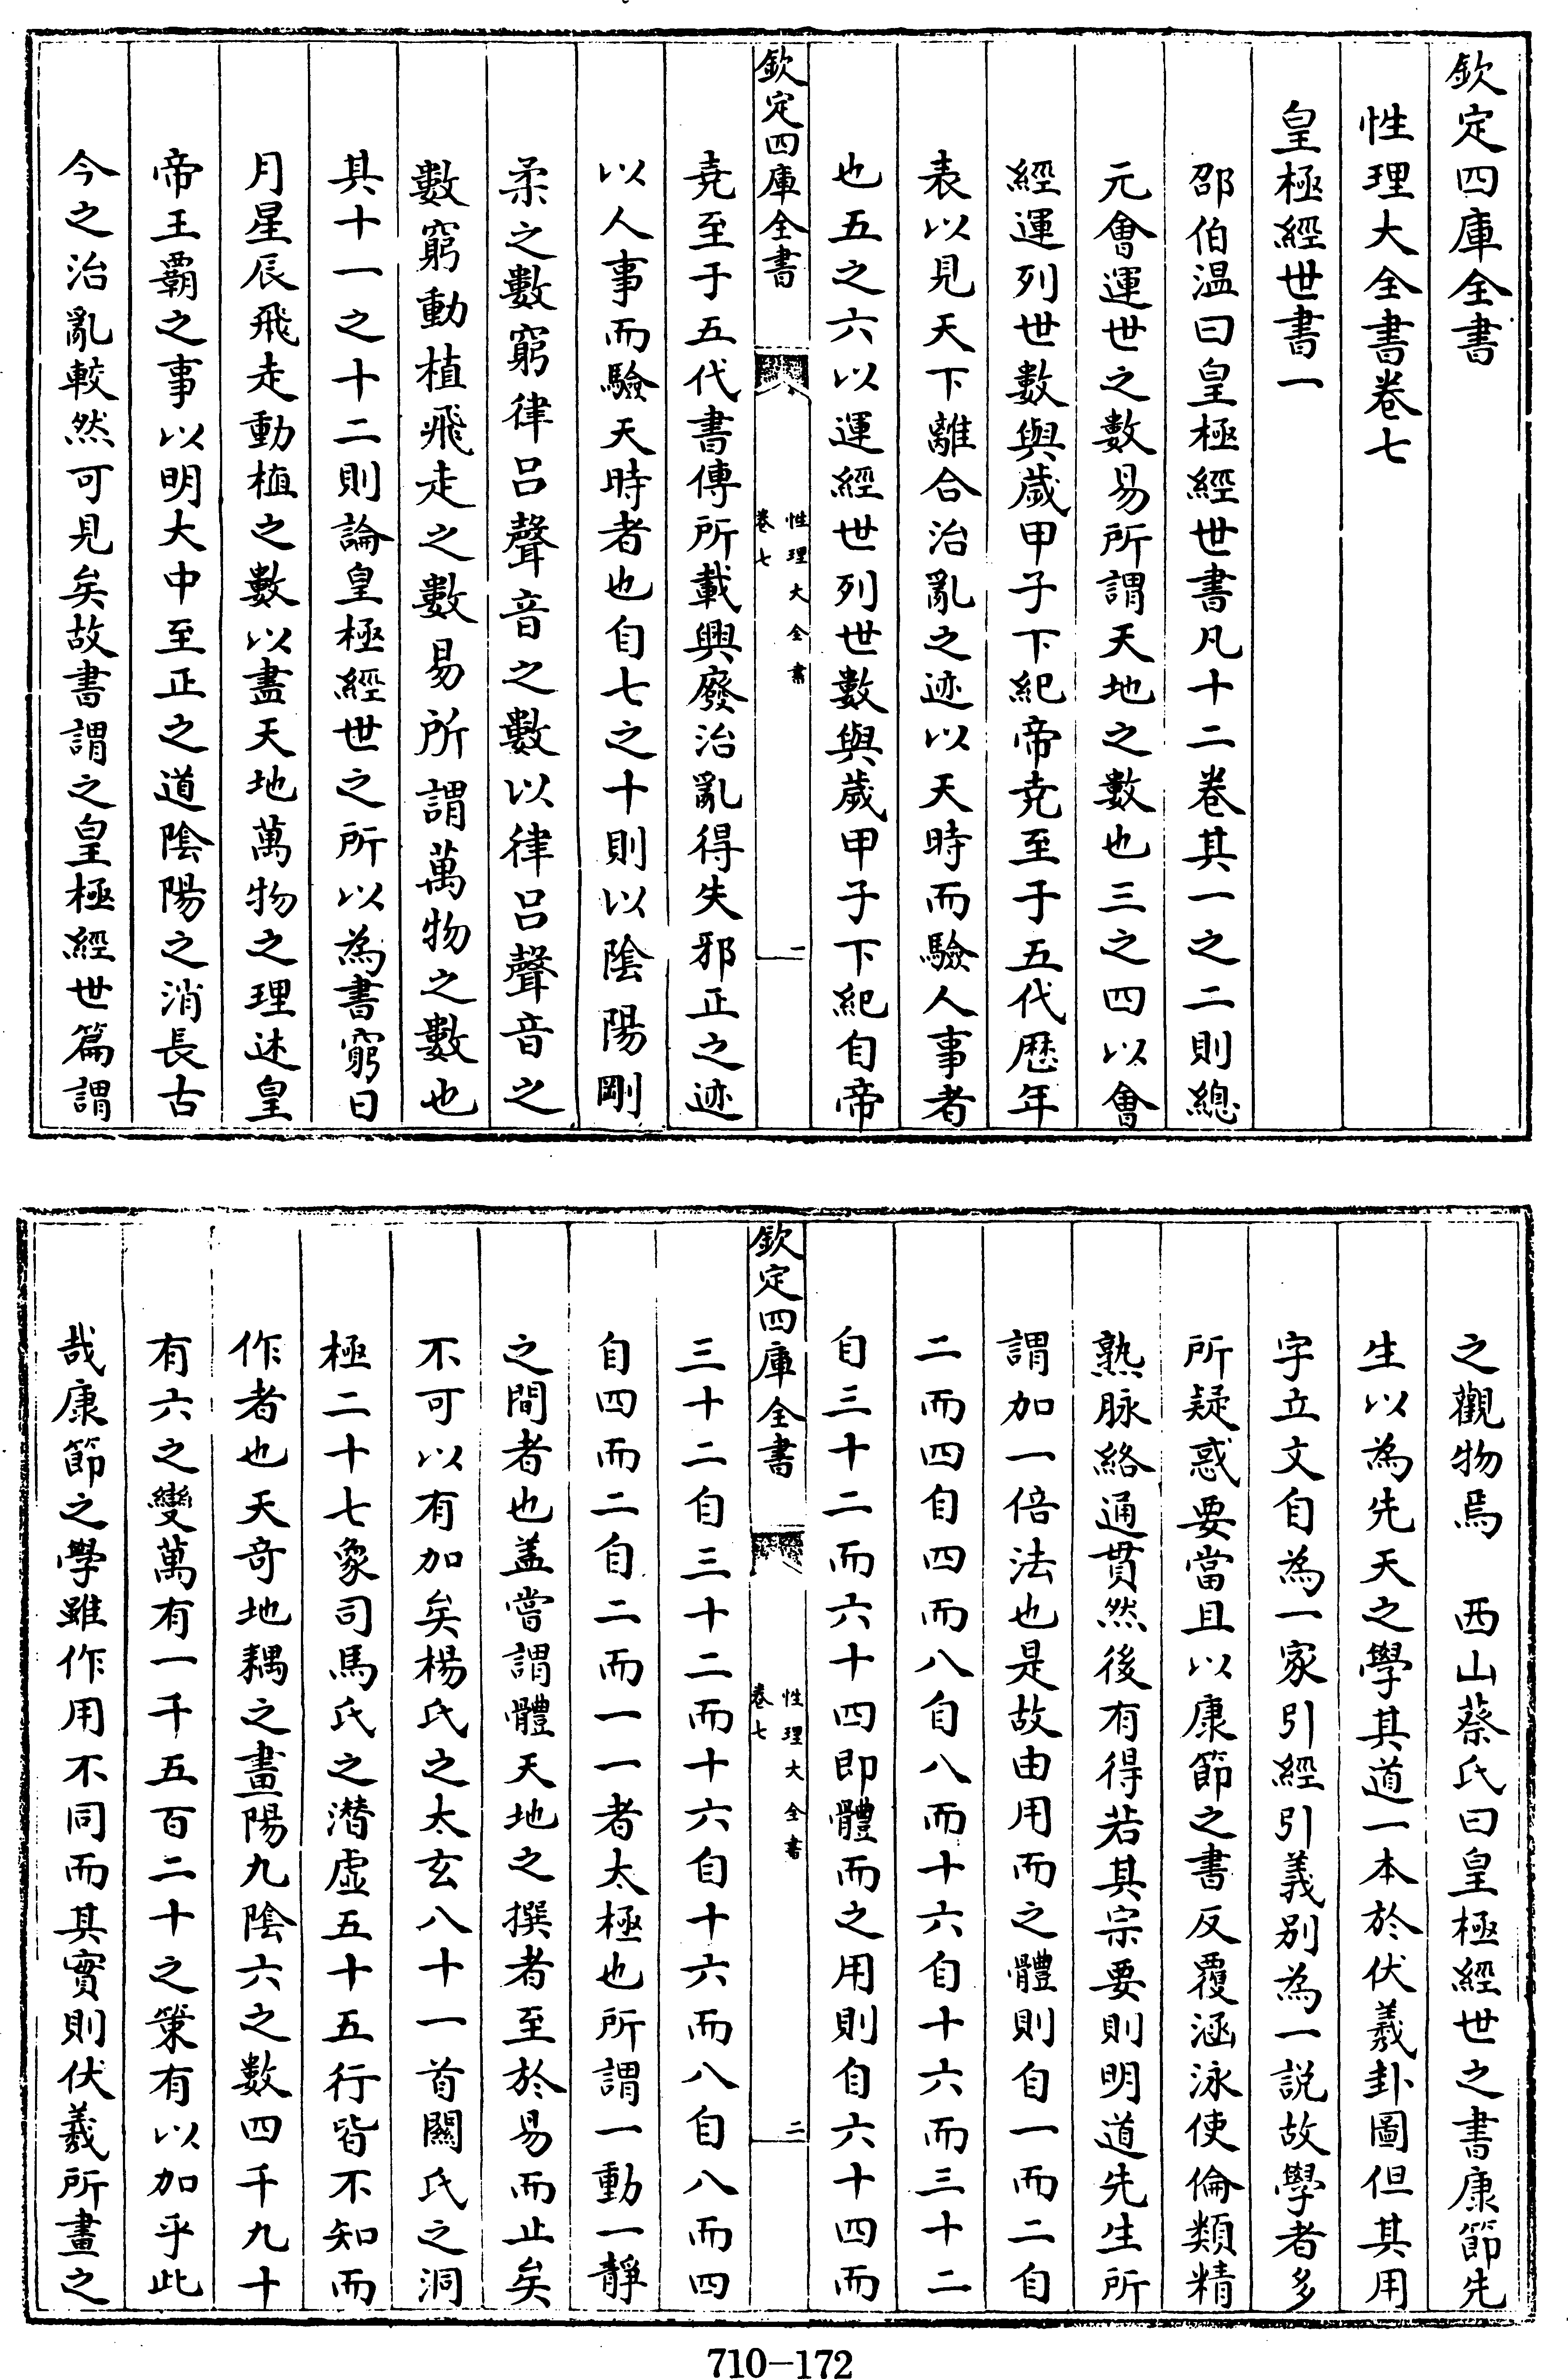 欽定四庫全書
性理大全書卷七
皇極經世書一
邵伯温曰皇極經世書凡十二卷其一之二則總
元會運世之數易所謂天地之數也三之四以會
經運列世數與歲甲子下紀帝堯至于五代歴年
表以見天下離合治亂之迹以天時而驗人事者
也五之六以運經世列世數與歲甲子下紀自帝
欽定四庫全書
性理大全書
卷七
一
堯至于五代書傳所載興廢治亂得失邪正之迹
以人事而驗天時者也自七之十則以陰陽剛
柔之數窮律吕聲音之數以律吕聲音之
數窮動植飛走之數易所謂萬物之數也
其十一之十二則論皇極經世之所以為書窮日
月星辰飛走動植之數以盡天地萬物之理述皇
帝王霸之事以明大中至正之道陰陽之消長古
今之治亂較然可見矣故書謂之皇極經世篇謂
之觀物焉 西山蔡氏曰皇極經世之書康節先
生以為先天之學其道一本於伏羲卦圖但其用
字立文自為一家引經引義别為一説故學者多
所疑惑要當且以康節之書反覆涵泳使倫類精
熟脉絡通貫然後有得若其宗要則明道先生所
謂加一倍法也是故由用而之體則自一而二自
二而四自四而八自八而十六自十六而三十二
自三十二而六十四即體而之用則自六十四而
欽定四庫全書
性理大全書
卷七
二
三十二自三十二而十六自十六而八自八而四
自四而二自二而一一者太極也所謂一動一靜
之間者也盖嘗謂體天地之撰者至於易而止矣
不可以有加矣楊氏之太玄八十一首關氏之洞
極二十七象司馬氏之潛虚五十五行皆不知而
作者也天奇地耦之畫陽九陰六之數四千九十
有六之變萬有一千五百二十之策有以加乎此
哉康節之學雖作用不同而其實則伏羲所畫之
710-172